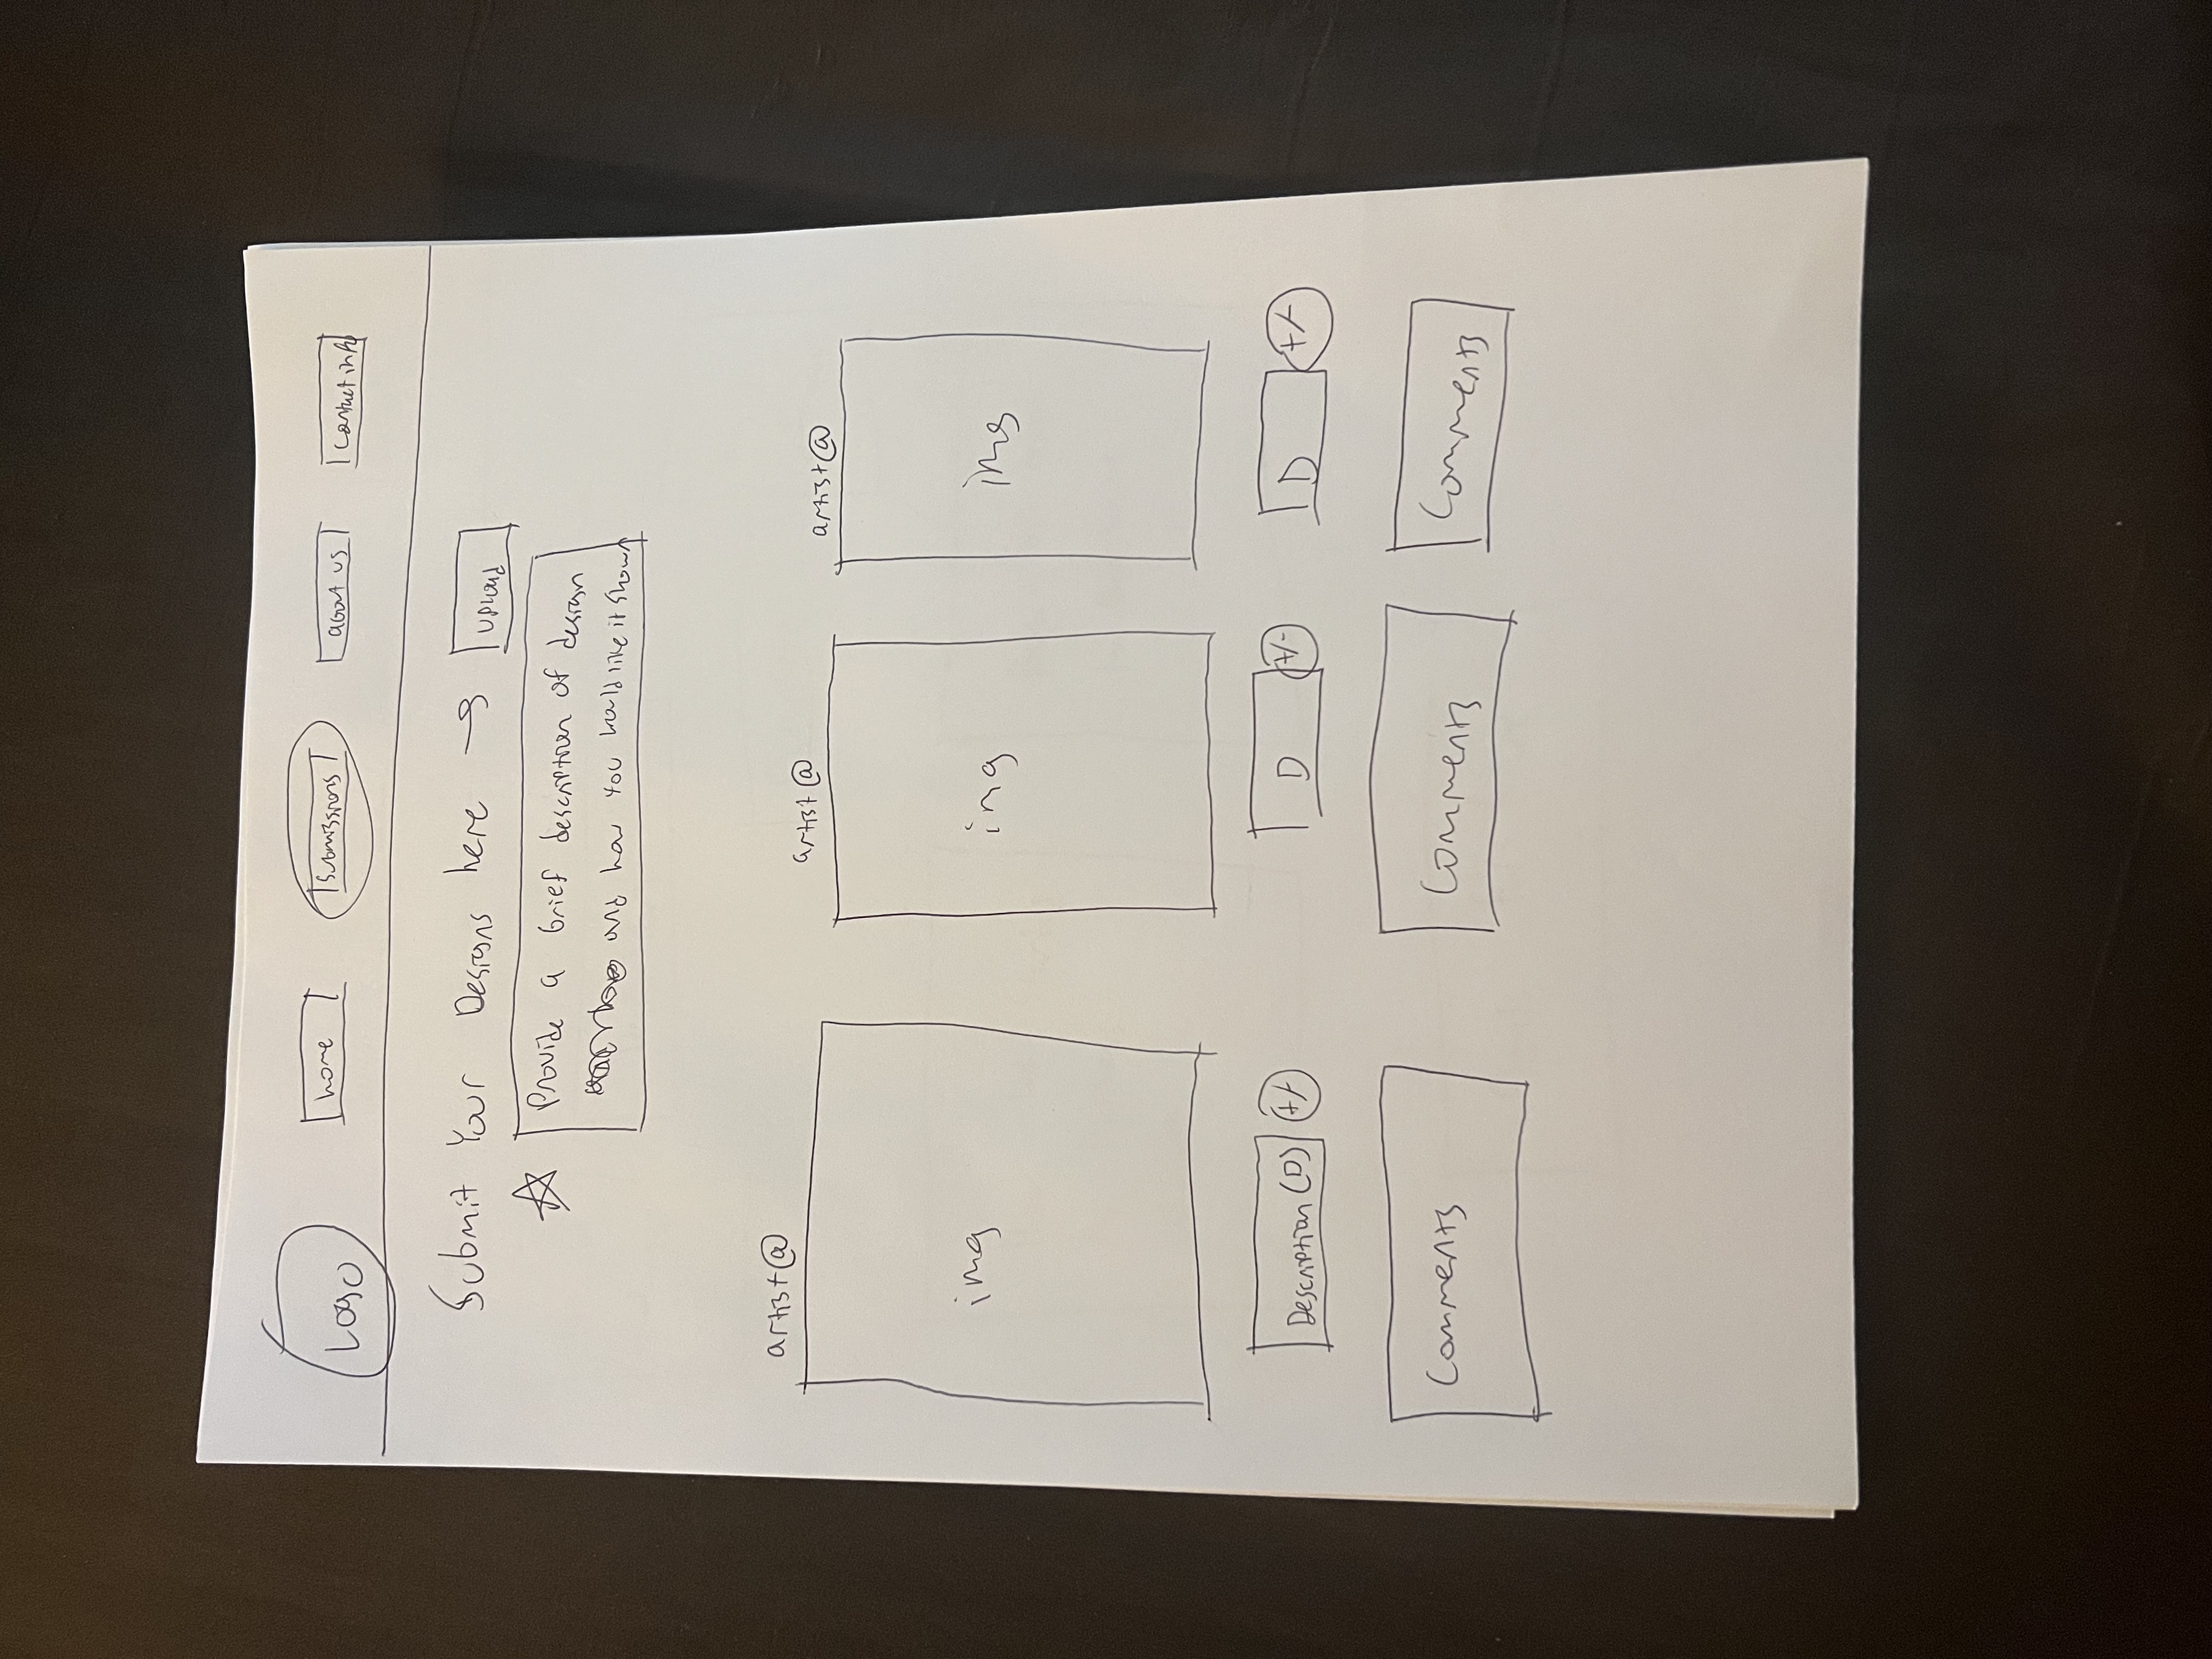 Logo
home
submissions
about us
contact info
Submit Your Designs here → upload
Provide a brief description of design
and how you would like it shown
artist@
artist@
artist@
img
img
img
Description (D) +/-
D +/-
D +/-
Comments
Comments
Comments